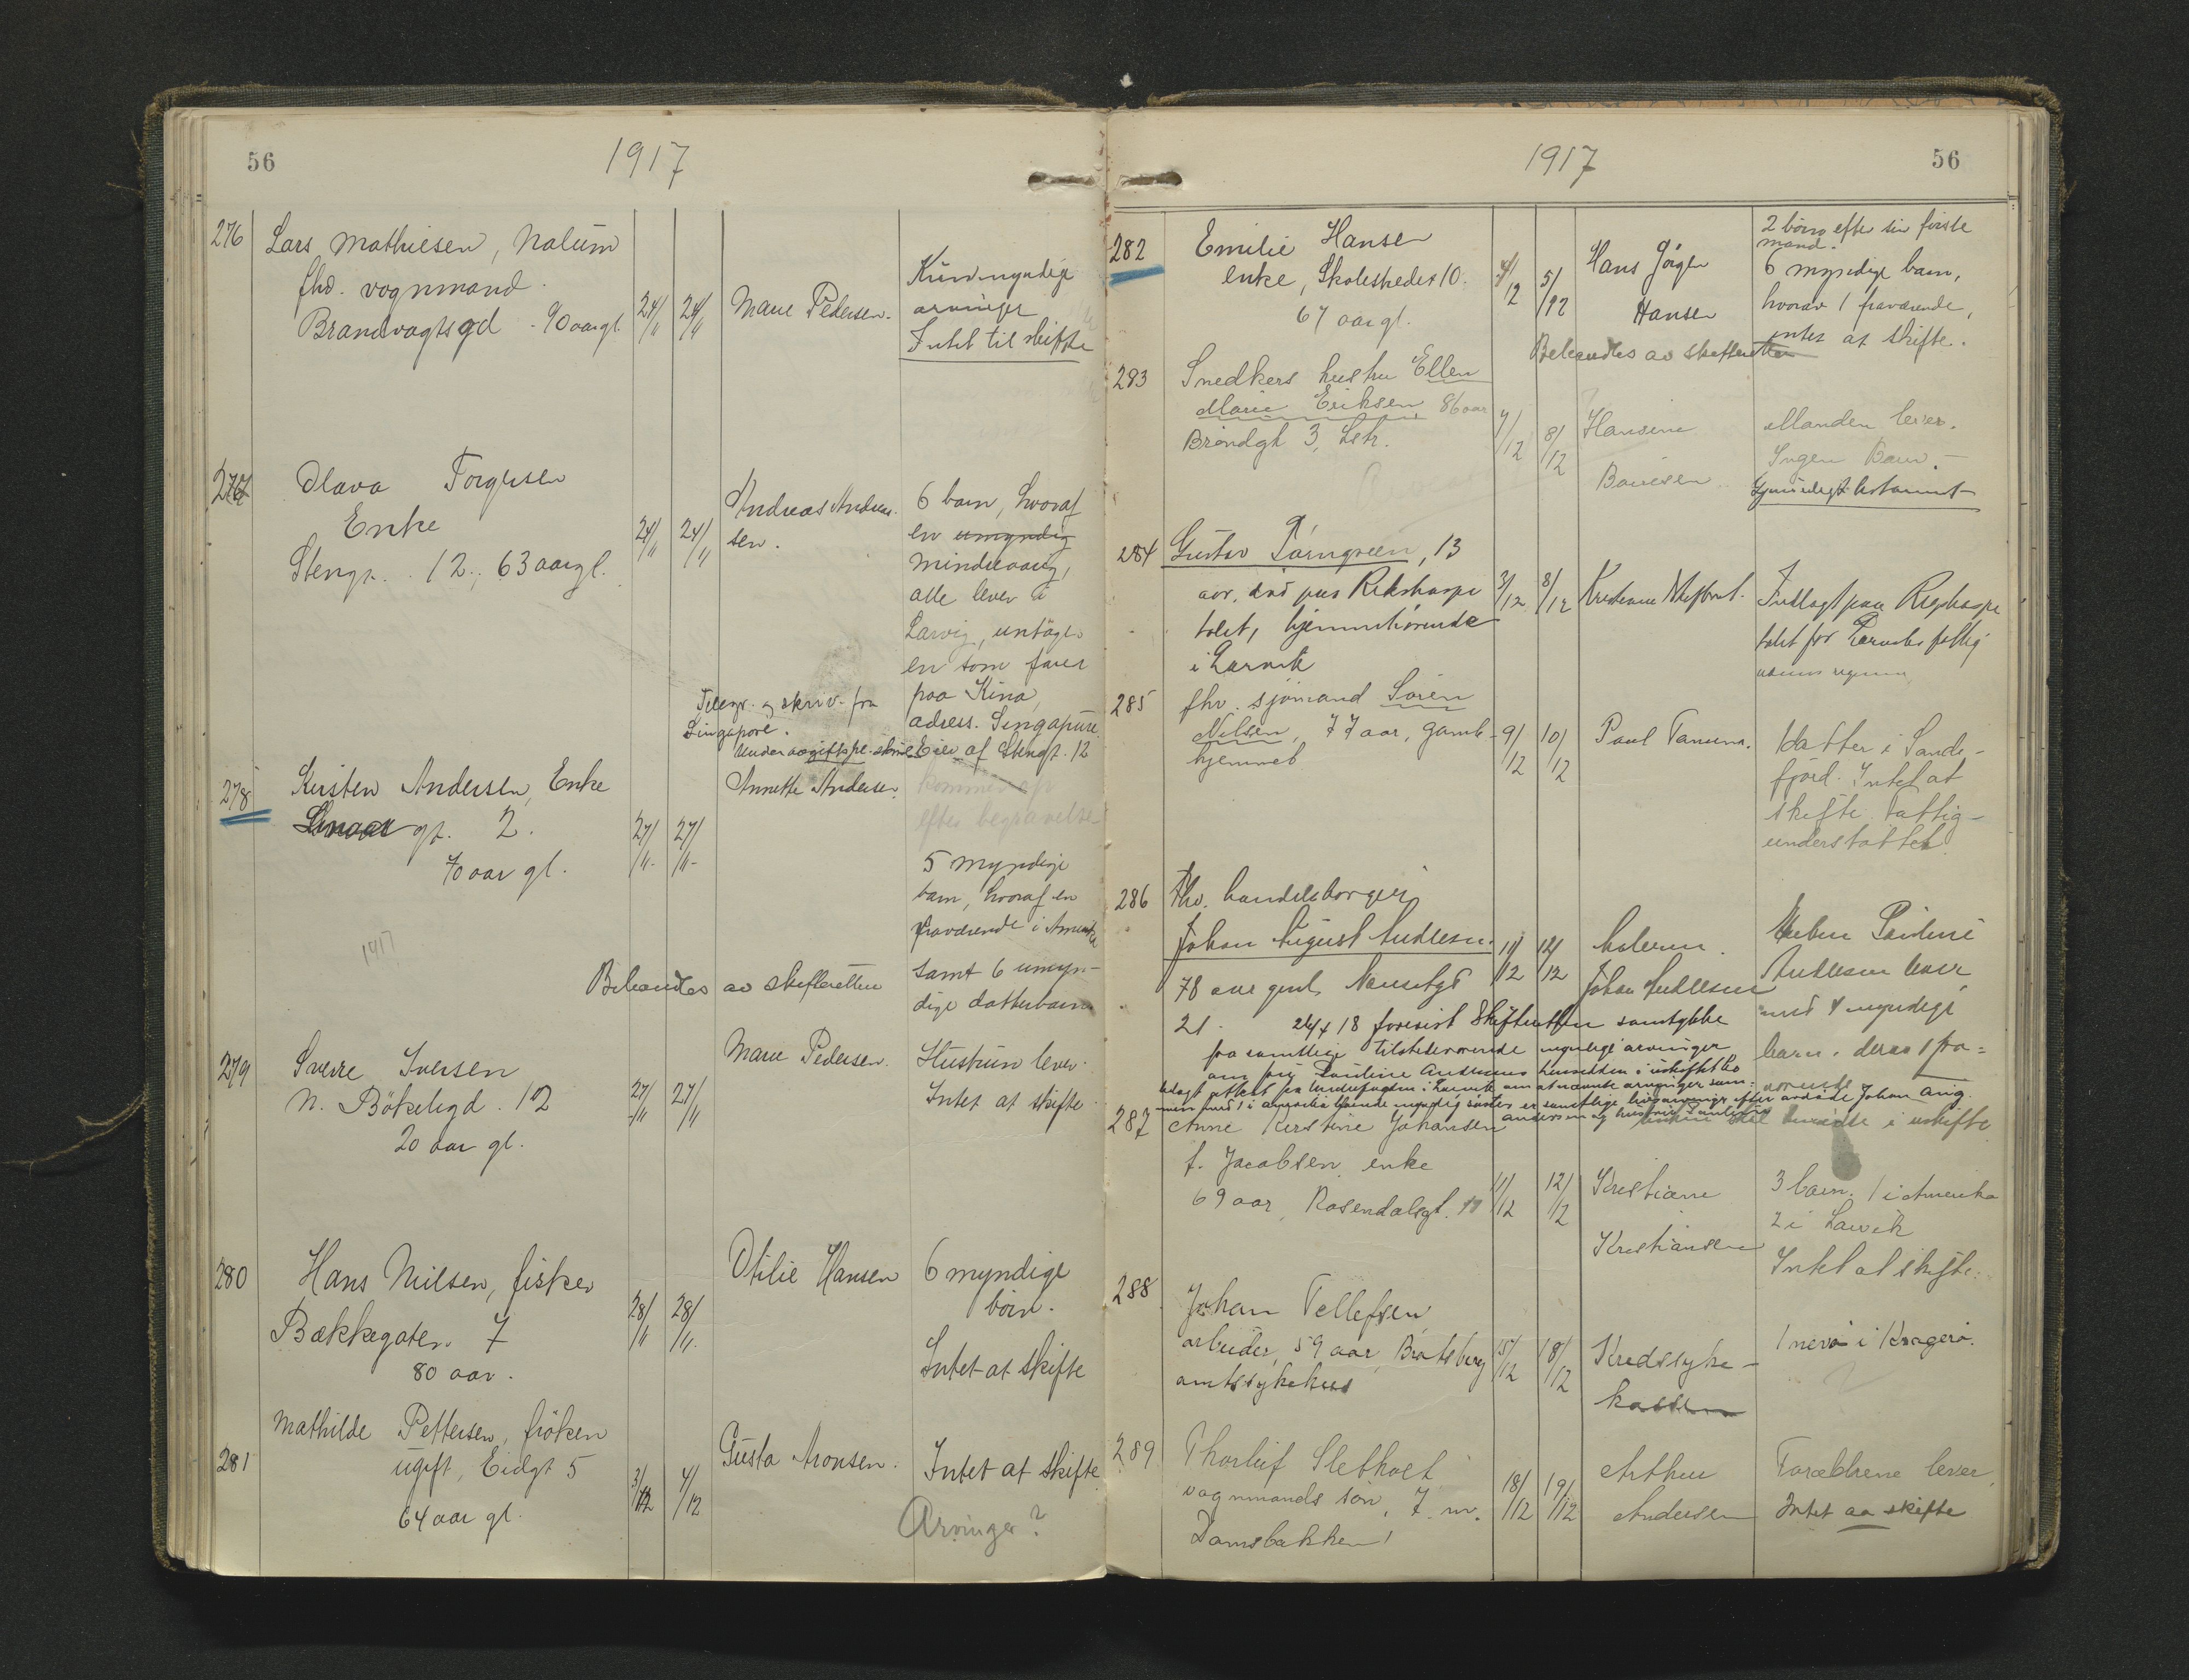 56
1917
276
Lars Mathiesen, Nalum
fhv. vognmand.
Brandvagtsgd - 90 aar gl.
24/11
24/11
Marie Pedersen.
Kun myndige
arvinger
Intet til skifte
277
Olava Torgersen
Enke
Stengt. 12., 63 aar gl.
24/11
24/11
Andreas Andrea-
sen.
6 barn, hvoraf
en umyndig
mindreaarig,
alle lever i
Larvig, untagen
en som farer
paa Kina,
adress. Singapure.
Eier af Stengt. 12
Telegr. og skriv. fra
Singapore.
278
Kirsten Andersen, Enke
gt. 2.
70 aar gl.
27/11-
27/11-
Annette Andersen.
kommer
efter begravelse
5 myndige
barn, hvoraf en
fraværende i Amerika
samt 6 umyn-
dige datterbarn
1917
Behandles av skifteretten
279
Sverre Iversen
N. Bökeligd. 12
20 aar gl.
27/11
27/11
Marie Pedersen.
Hustrun lever.
Intet at skifte.
280
Hans Nilsen, fisker
Bækkegaten. 7
80 aar.
28/11
28/11.
Otilie Hansen
6 myndige
börn.
Intet at skifte
281
Mathilde Pettersen, fröken
ugift, Eidgt 5
64 aar gl.
3/12
4/12
Gusta Aronsen.
Intet at skifte
Arvinger?
1917
56
282
Emilie Hansen
enke, Skolestredet 10.
67 aar gl.
4/12
5/12
Hans Jörgen
Hansen
2 börn efter sin förste
mand.
6 myndige barn,
hvorav 1 fraværende,
intet at skifte.
Behandles av skifteretten
283
Snedkers hustru Ellen
Marie Eriksen 86 aar
Bröndgt 3, Lstr.
7/12
8/12
Hansine
Manden lever.
Ingen Barn. -
Gjensidigt testament
284
Gustav Törngreen, 13
aar, död paa Rikshospi
talet, hjemmehörende
i Larvik
3/12
8/12
Indlagt paa Rigshospi
talet for Larviks fattig
285
fhv. sjömand Sören
Nilsen, 77 aar, gamle
hjemmet
9/12
10/12
Paul Tanum.
Datter i Sande-
fjörd. Intet at
skifte. Fattig-
understöttet
286
Fhv. handelsborger
Johan August Andresen.
78 aar gml, Nansetgt
21.
11/12
12/12
Johan Andresen
Enken Pauline
Andresen lever
med 4 myndige
barn. derav 1 fra=
værende
26/4 18 forevist Skifteretten samtykke
fra samtlige tilstedeværende myndige arvinger
287
Anne Kirstine Johansen
f. Jacobsen, enke
69 aar, Rosendalsgt. 11
11/12
12/12
Kristiane
Kristiansen
3 barn. 1 i Amerika
2 i Larvik
Intet at skifte.
288
Johan Tellefsen
arbeider, 59 aar, Bratsberg
amtssykehus
15/12
18/12
Kredssyke-
kassen
1 nevö i Kragerö.
289
Thorleif Sletholt
vognmands sön, 7 m.
Damsbakken 1
18/12
19/12
Arthur
Andersen
Forældrene lever
Intet aa skifte